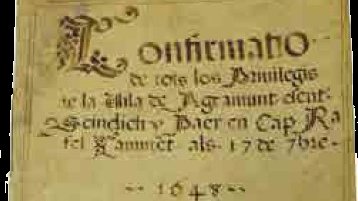 Confirmatio
de tots los Privilegis
de la Vila de Agramunt essent
Scindich y Paer en Cap Ra
fel Lauuet als 17 de 7bre
1648